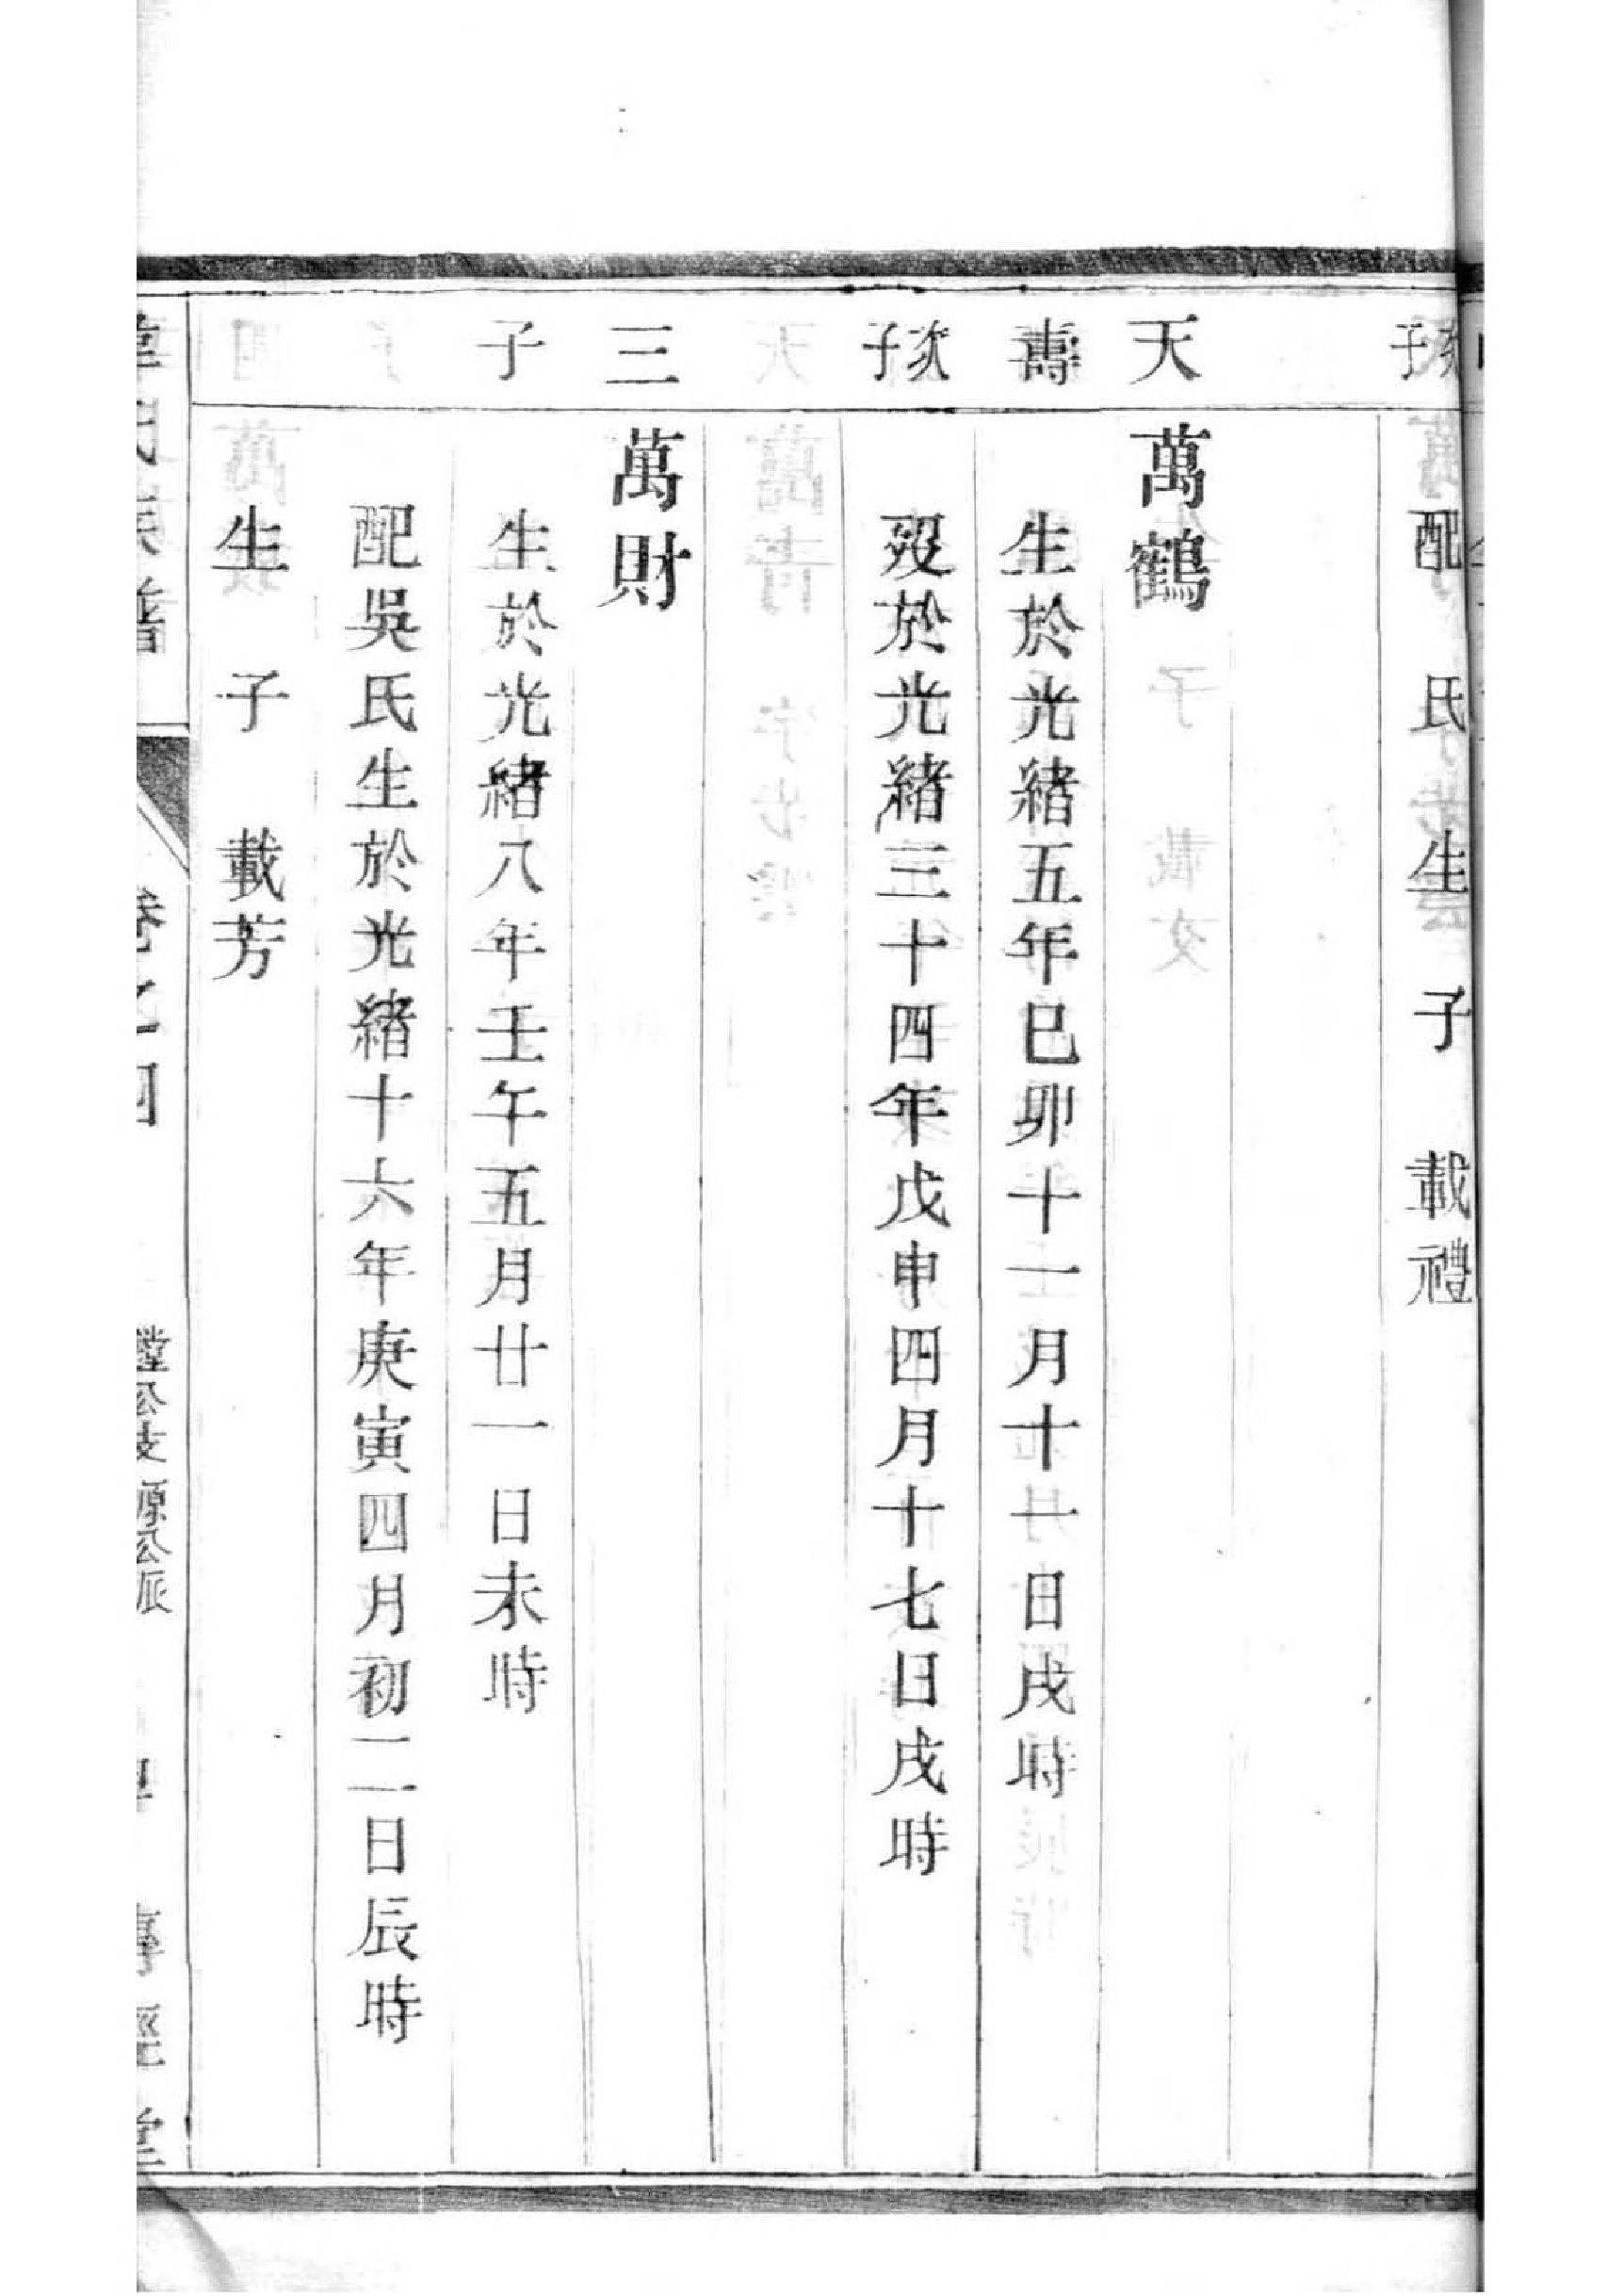 配 氏 生 子 載禮
天 萬鶴
壽 生於光緒五年巳卯十一月十一日戌時
歿於光緒三十四年戊申四月十七日戌時
三 萬財
子 生於光緒八年壬午五月廿一日未時
配吳氏生於光緒十六年庚寅四月初二日辰時
生 子 載芳
氏族譜 卷之四 公支源公派 經堂